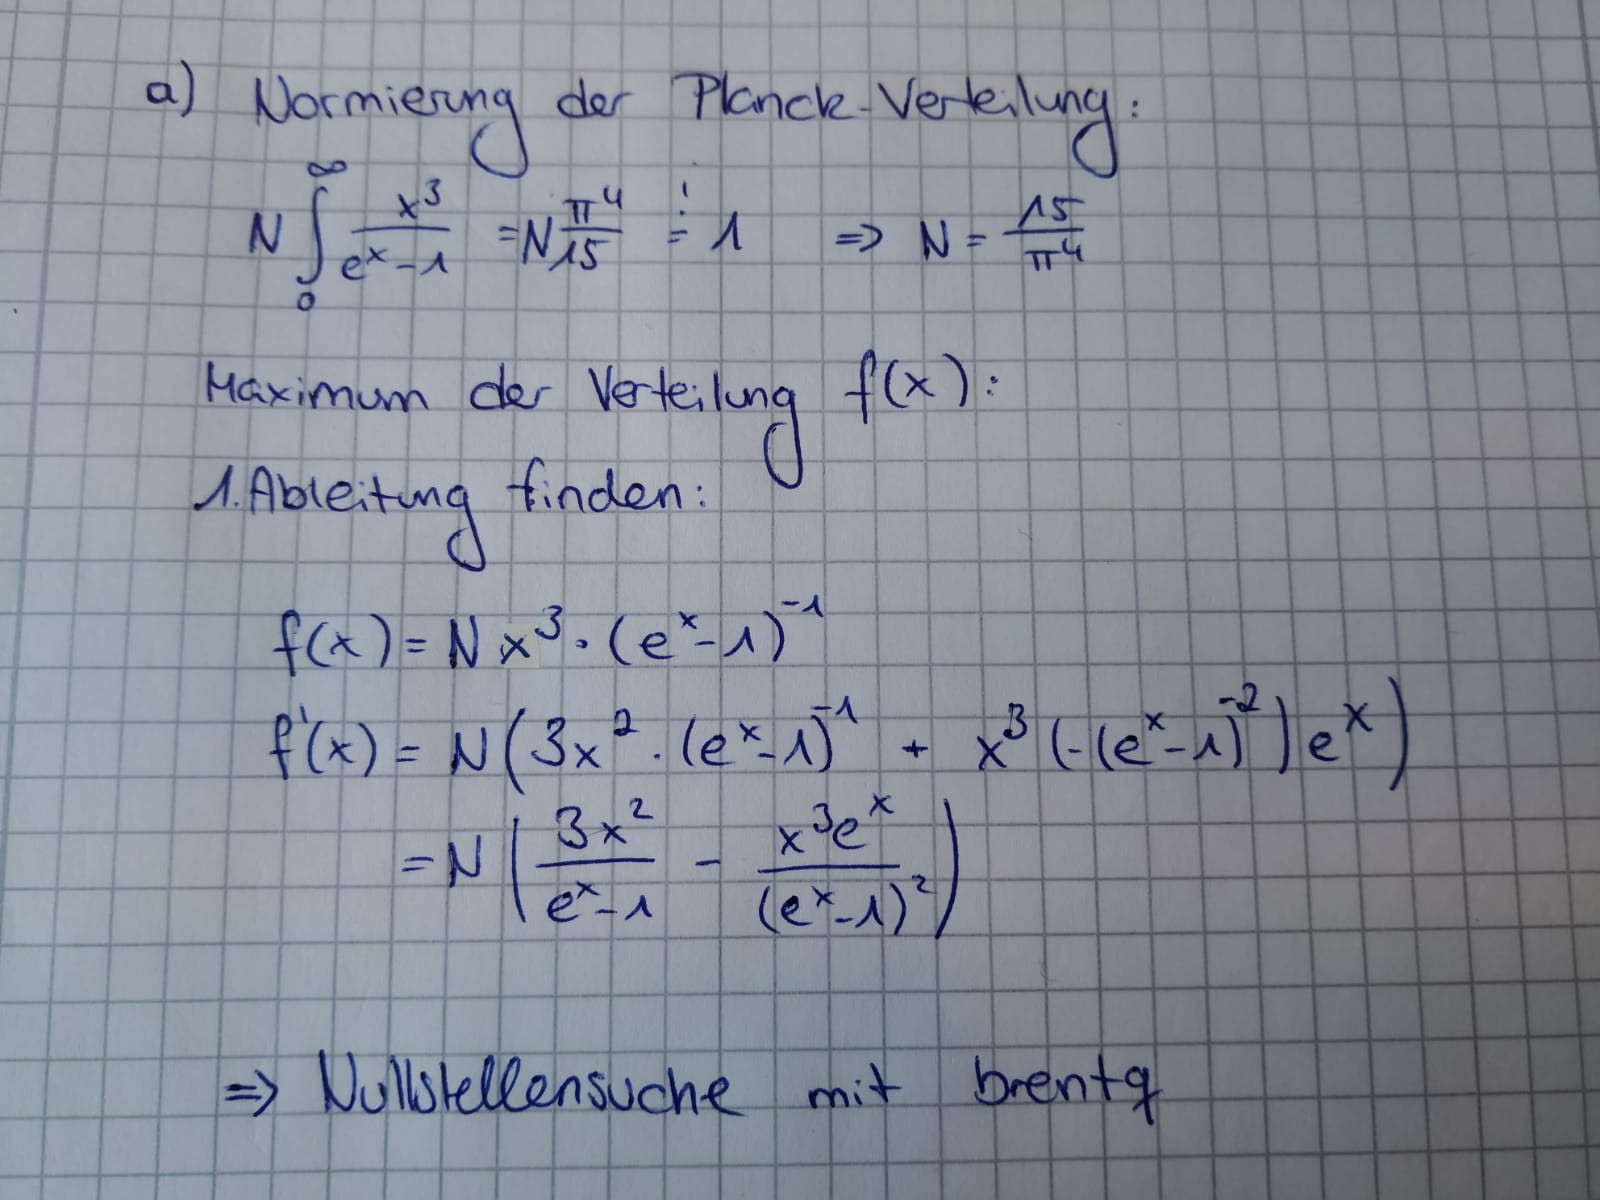 a) Normierung der Planck-Verteilung:
N ∫₀^∞ x³/(eˣ-1) = N π⁴/15 =! 1 ⇒ N = 15/π⁴
Maximum der Verteilung f(x):
1. Ableitung finden:
f(x) = N x³ · (eˣ-1)⁻¹
f'(x) = N (3x² · (eˣ-1)⁻¹ + x³ (-(eˣ-1)⁻²) eˣ)
= N (3x²/(eˣ-1) - x³eˣ/(eˣ-1)²)
⇒ Nullstellensuche mit brentq